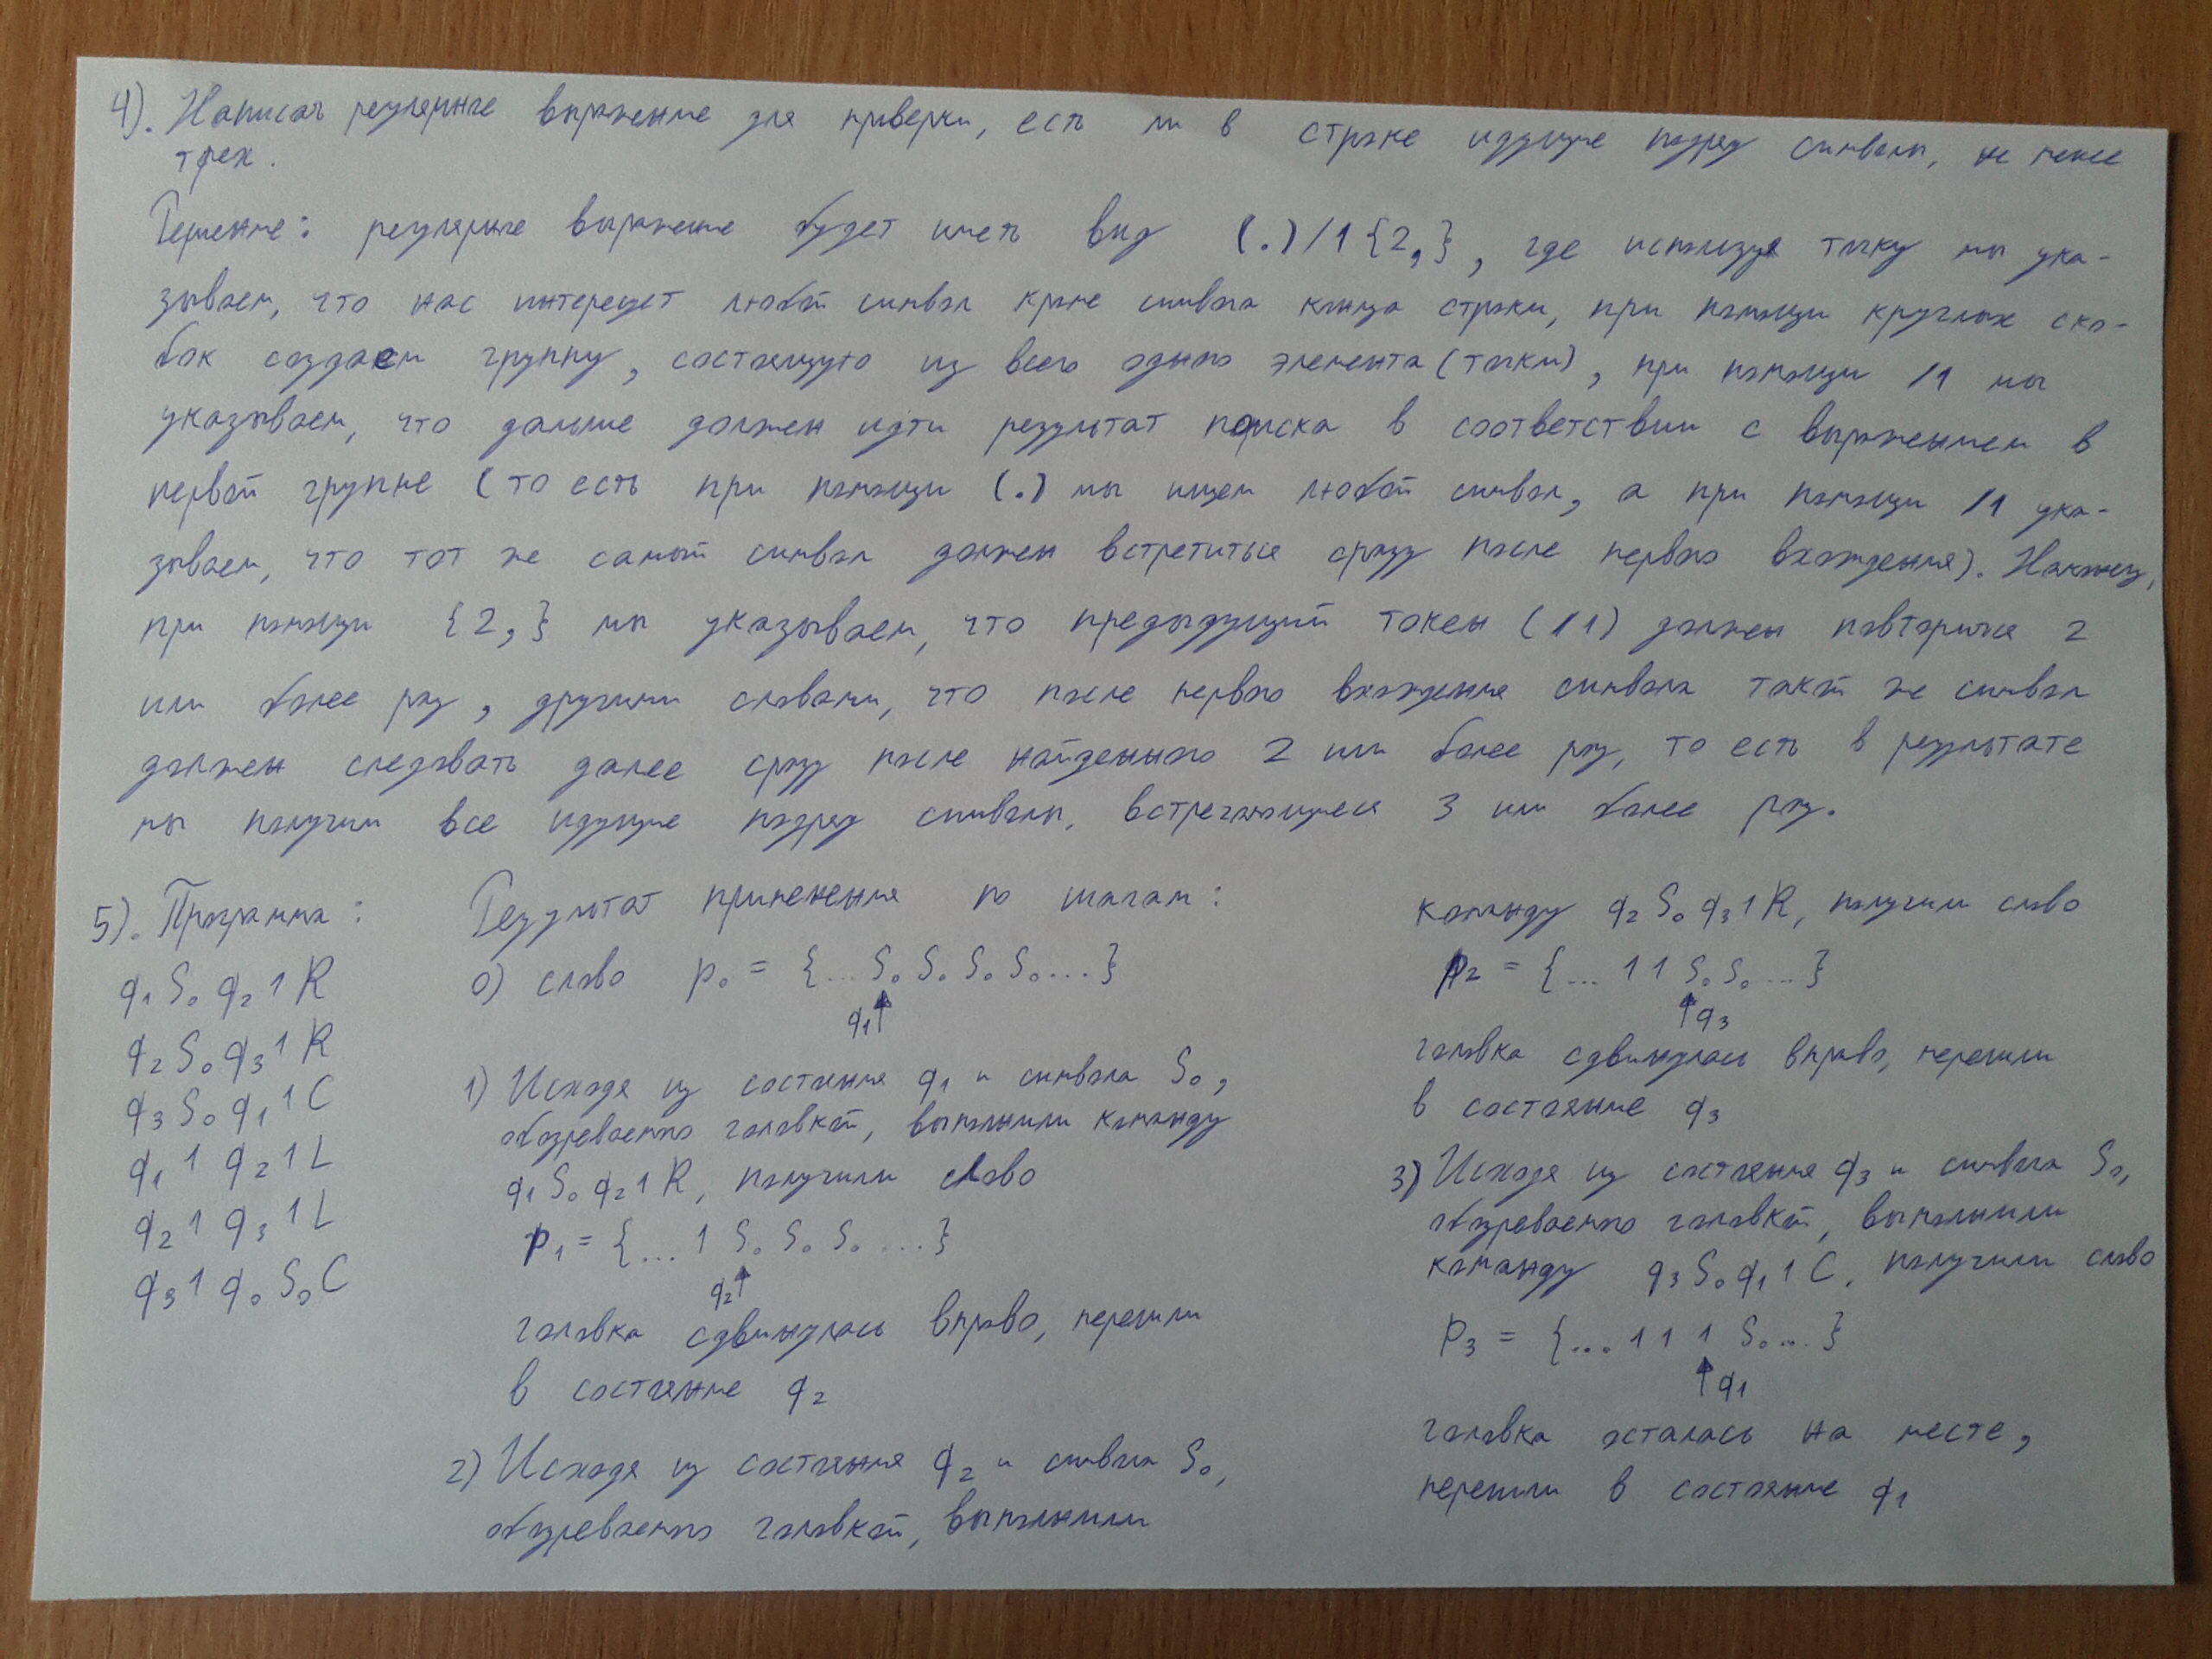 4). Написать регулярные выражение для проверки, есть ли в строке идущие подряд символы, не менее
трех.
Решение: регулярные выражение будет иметь вид (.)/1{2,}, где используя точку мы ука-
зываем, что нас интересует любой символ кроме символа конца строки, при помощи круглых ско-
бок создаем группу, состоящую из всего одного элемента (точки), при помощи /1 мы
указываем, что дальше должен идти результат поиска в соответствии с выражением в
первой группе (то есть при помощи (.) мы ищем любой символ, а при помощи /1 ука-
зываем, что тот же самый символ должен встретиться сразу после первого вхождения). Наконец,
при помощи {2,} мы указываем, что предыдущий токен (/1) должен повториться 2
или более раз, другими словами, что после первого вхождения символа такой же символ
должен следовать далее сразу после найденного 2 или более раз, то есть в результате
мы получим все идущие подряд символы, встречающиеся 3 или более раз.
5). Программа:
q₁ S₀ q₂ 1 R
q₂ S₀ q₃ 1 R
q₃ S₀ q₁ 1 C
q₁ 1 q₂ 1 L
q₂ 1 q₃ 1 L
q₃ 1 q₀ S₀ C
Результат применения по шагам:
0) слово p₀ = {... S₀ S₀ S₀ S₀ ...}
q₁↑
1) Исходя из состояния q₁ и символа S₀,
обозреваемого головкой, выполнили команду
q₁ S₀ q₂ 1 R, получили слово
p₁ = {... 1 S₀ S₀ S₀ ...}
q₂↑
головка сдвинулась вправо, перешли
в состояние q₂
2) Исходя из состояния q₂ и символа S₀,
обозреваемого головкой, выполнили
команду q₂ S₀ q₃ 1 R, получили слово
p₂ = {... 1 1 S₀ S₀ ...}
↑q₃
головка сдвинулась вправо, перешли
в состояние q₃
3) Исходя из состояния q₃ и символа S₀,
обозреваемого головкой, выполнили
команду q₃ S₀ q₁ 1 C, получили слово
p₃ = {... 1 1 1 S₀ ...}
↑q₁
головка осталась на месте,
перешли в состояние q₁